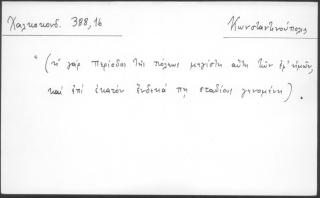 Χαλκοκονδ. 388,16 Κωνσταντινούπολις
“ (ἡ γὰρ περίοδος τῆς πόλεως μεγίστη αὕτη τῶν ἐφ' ἡμῶν,
καὶ ἐπὶ ἑκατὸν ἕνδεκά πη σταδίους γενομένη).